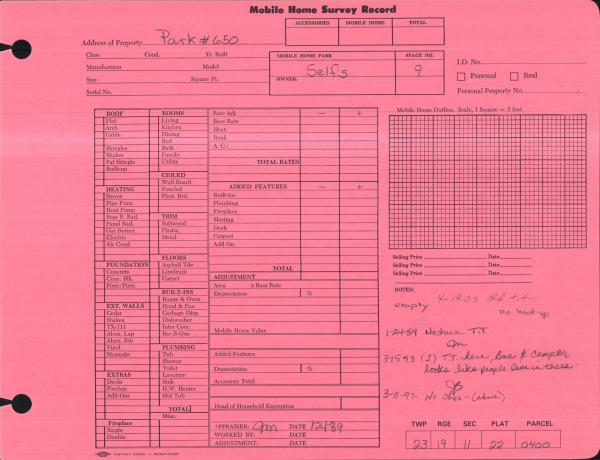 Mobile Home Survey Record
ACCESSORIES MOBILE HOME TOTAL
Address of Property Park #650
Class Cond. Yr. Built
Manufacturer Model
Size Square Ft.
Serial No.
MOBILE HOME PARK SPACE NO.
OWNER: Self's 9
I.D. No.
Personal Real
Personal Property No.
ROOF
Flat
Arch
Gable
Shingles
Shakes
Pat Shingle
Built-up
HEATING
Stoves
Pipe Furn.
Heat Pump
Base B. Rad.
Panel Rad.
Gas Burner
Electric
Air Cond.
FOUNDATION
Concrete
Conc. Blk.
Posts/Piers
EXT. WALLS
Cedar
Shakes
TX-111
Alum. Lap
Alum. Rib
Vinyl
Masonite
EXTRAS
Decks
Porches
Add-Ons
Fireplace
Single
Double
ROOMS
Living
Kitchen
Dining
Bed
Bath
Family
Utility
CEILED
Wall Board
Paneled
Plast. Brd.
TRIM
Softwood
Plastic
Metal
FLOORS
Asphalt Tile
Linoleum
Carpet
BUILT-INS
Range & Oven
Hood & Fan
Garbage Disp.
Dishwasher
Inter Com.
Bar-B-Que
PLUMBING
Tub
Shower
Toilet
Lavatory
Sink
H.W. Heater
Hot Tub
TOTAL
Misc.
Rate Adj. — +
Base Rate
Heat:
Roof:
A. C.:
TOTAL RATES
ADDED FEATURES — +
Built-ins
Plumbing
Fireplace
Skirting
Deck
Carport
Add On
TOTAL
ADJUSTMENT
Area x Base Rate
Depreciation %
Mobile Home Value
Added Features
Depreciation %
Accessory Total
Head of Household Exemption
APPRAISER: Jm DATE 12489
WORKED BY: DATE
ADJUSTMENT: DATE
Mobile Home Outline. Scale, 1 Square = 2 feet
Selling Price Date
Selling Price Date
Selling Price Date
NOTES:
empty old t.t.
no hook-up
1-24-89 Nashua T.T.
Jm
3-15-93 (2) T.T. here, Bus & Camper
looks like people live in these.
3-11-97- No chgs- (above)
TWP RGE SEC PLAT PARCEL
23 19 11 22 0400